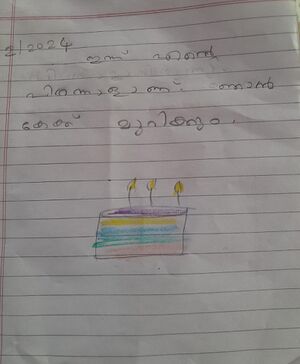 2/2024
ഇന്ന് എന്റെ
പിറന്നാളാണ്. ഞാൻ
കേക്ക് മുറിക്കും.